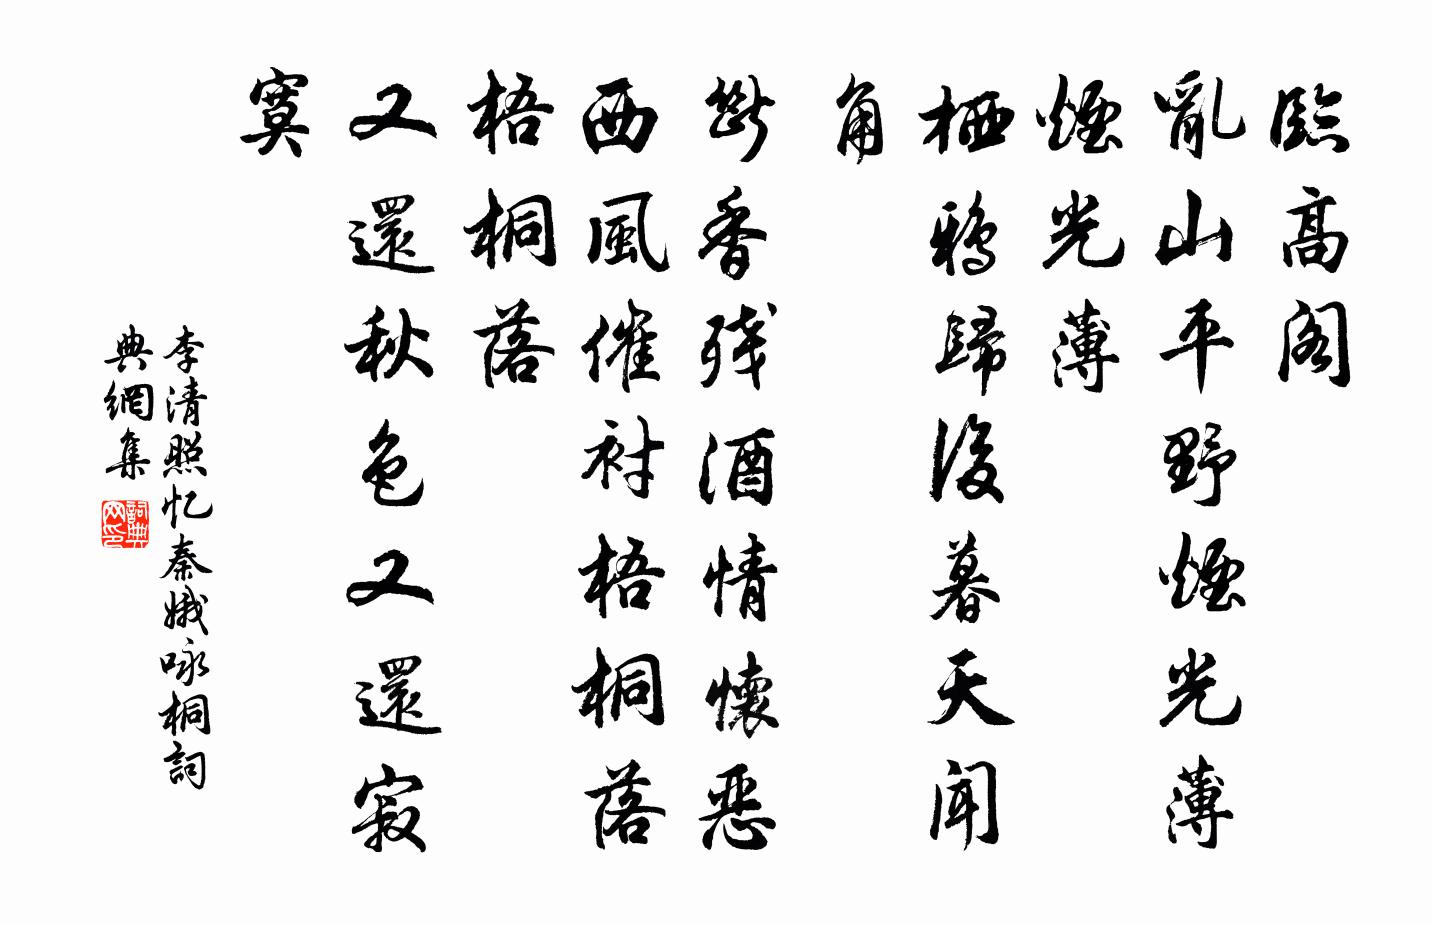 臨高閣
亂山平野煙光薄
煙光薄
栖鴉歸後暮天聞
角
斷香残酒情懷惡
西風催衬梧桐落
梧桐落
又還秋色又還寂
寞
李清照忆秦娥咏桐詞
典網集
詞典
网印